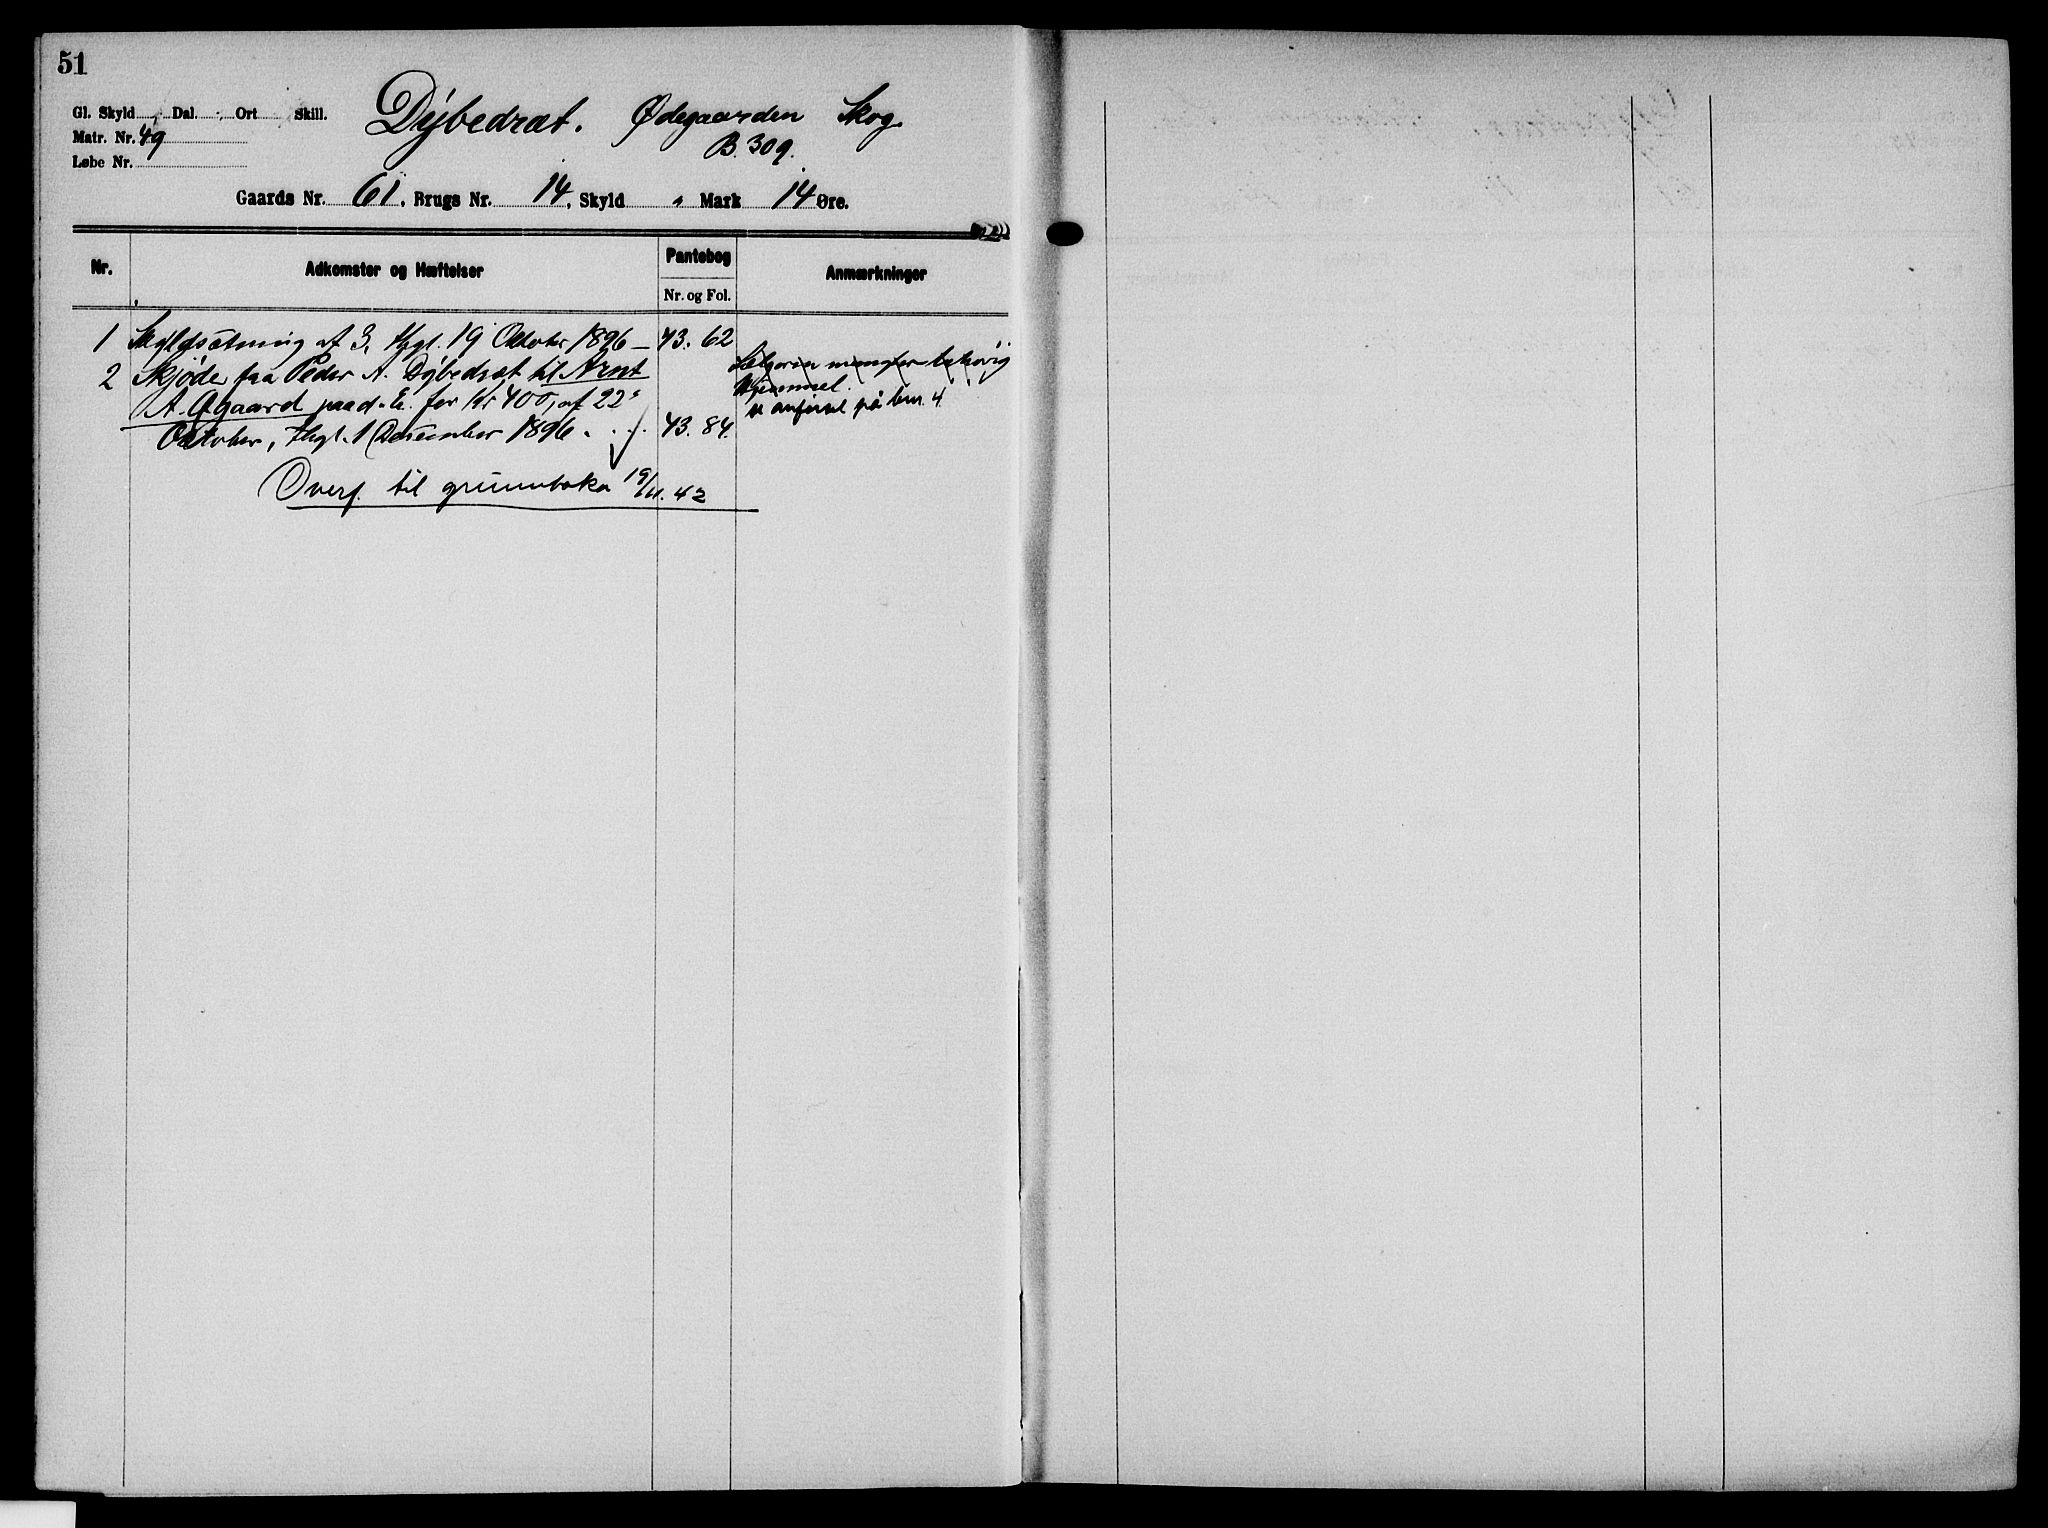 51
Gl. Skyld Dal. Ort Skill.
Dybedræt. Ødegaarden Skog
Matr. Nr. 49
B. 309.
Løbe Nr.
Gaards Nr. 61, Brugs Nr. 14, Skyld " Mark 14 Øre.
Nr. Adkomster og Hæftelser Pantebog Anmærkninger
Nr. og Fol.
1 Skyldsætning af 3, thgl. 19 Oktober 1896 — 43. 62
2 Skjøde fra Peder A. Dybedræt til Arnt
A. Agaard paa d. E. for Kr 400, af 22
Oktober, thgl. 1 December 1896 . . . 43. 84.
Sælgeren mangler behøvig
Hjemmel.
anførsel på bnr. 4
Overf. til grunnboka 19/11. 42